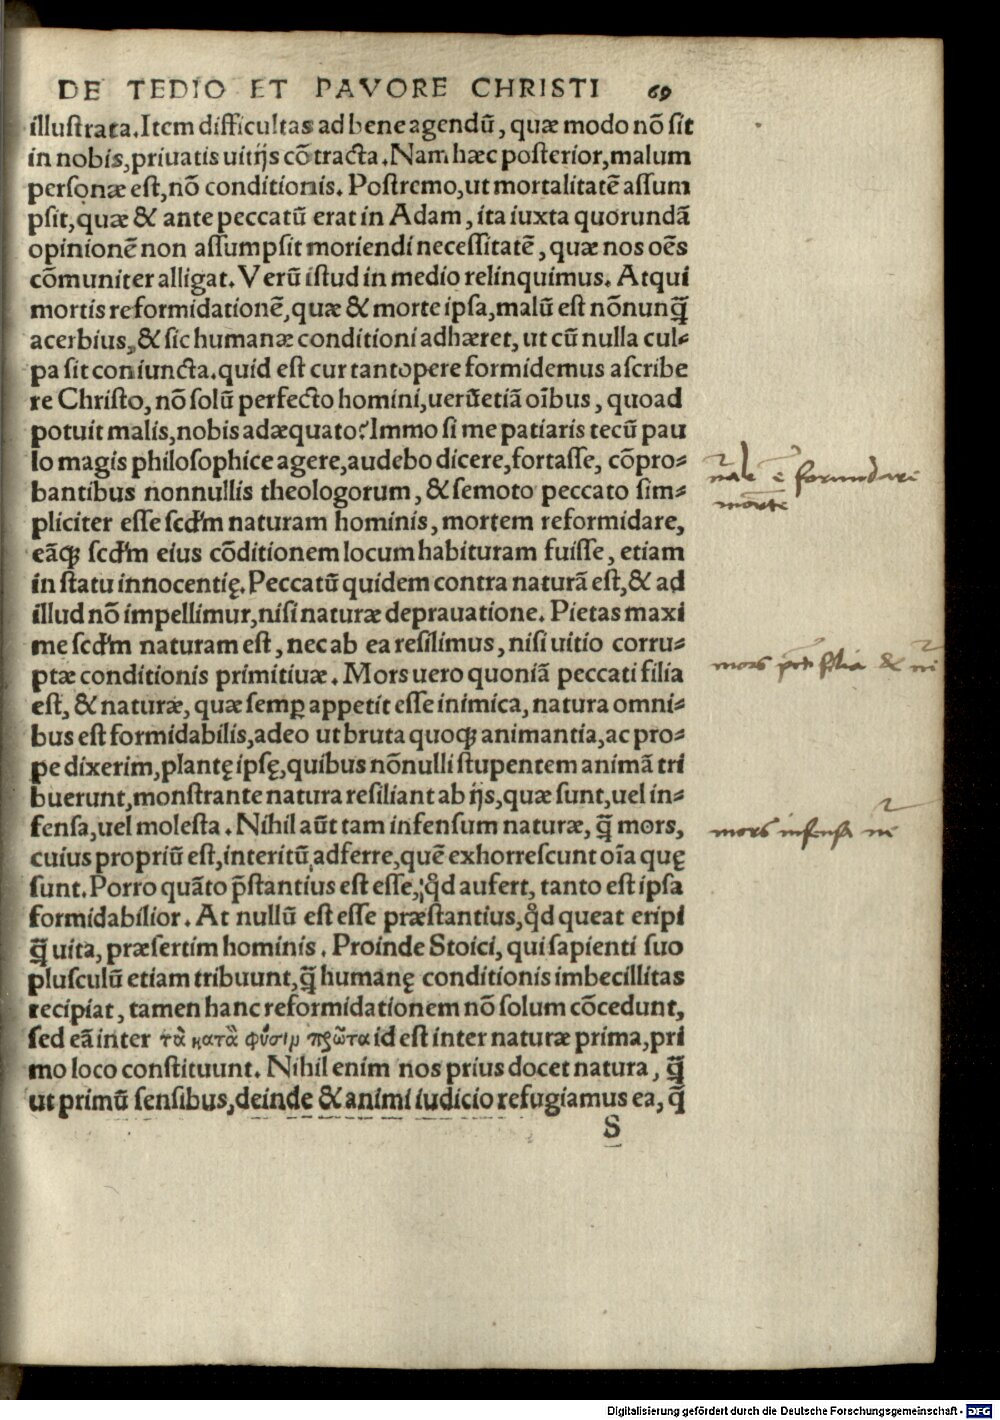 DE TEDIO ET PAVORE CHRISTI 69
illustrata. Item difficultas ad bene agendũ, quæ modo nõ sit
in nobis, priuatis uitijs cõtracta. Nam hæc posterior, malum
personæ est, nõ conditionis. Postremo, ut mortalitatẽ assum
psit, quæ & ante peccatũ erat in Adam, ita iuxta quorundã
opinionẽ non assumpsit moriendi necessitatẽ, quæ nos oẽs
cõmuniter alligat. Verũ istud in medio relinquimus. Atqui
mortis reformidationẽ, quæ & morte ipsa, malũ est nõnunq̃
acerbius, & sic humanæ conditioni adhæret, ut cũ nulla cul-
pa sit coniuncta. quid est cur tantopere formidemus ascribe
re Christo, nõ solũ perfecto homini, uerũ etiã oĩbus, quoad
potuit malis, nobis adæquato? Immo si me patiaris tecũ pau
lo magis philosophice agere, audebo dicere, fortasse, cõpro-
bantibus nonnullis theologorum, & semoto peccato sim-
pliciter esse scd'm naturam hominis, mortem reformidare,
eãq; scd'm eius cõditionem locum habituram fuisse, etiam
in statu innocentię. Peccatũ quidem contra naturã est, & ad
illud nõ impellimur, nisi naturæ deprauatione. Pietas maxi
me scd'm naturam est, nec ab ea resilimus, nisi uitio corru-
ptæ conditionis primitiuæ. Mors uero quoniã peccati filia
est, & naturæ, quæ semp̱ appetit esse inimica, natura omni-
bus est formidabilis, adeo ut bruta quoq; animantia, ac pro-
pe dixerim, plantę ipsę, quibus nõnulli stupentem animã tri
buerunt, monstrante natura resiliant ab ijs, quæ sunt, uel in-
fensa, uel molesta. Nihil aũt tam infensum naturæ, q̃ mors,
cuius propriũ est, interitũ adferre, quẽ exhorrescunt oĩa quę
sunt. Porro quãto p̃stantius est esse, qd aufert, tanto est ipsa
formidabilior. At nullũ est esse præstantius, qd queat eripi
q̃ uita, præsertim hominis. Proinde Stoici, qui sapienti suo
plusculũ etiam tribuunt, q̃ humanę conditionis imbecillitas
recipiat, tamen hanc reformidationem nõ solum cõcedunt,
sed eã inter τὰ κατὰ φύσιν πρῶτα id est inter naturæ prima, pri
mo loco constituunt. Nihil enim nos prius docet natura, q̃
ut primũ sensibus, deinde & animi iudicio refugiamus ea, q̃
S
nale ẽ formidare
morte
mors pcti filia & nẽ
mors infensa nẽ
Digitalisierung gefördert durch die Deutsche Forschungsgemeinschaft - DFG